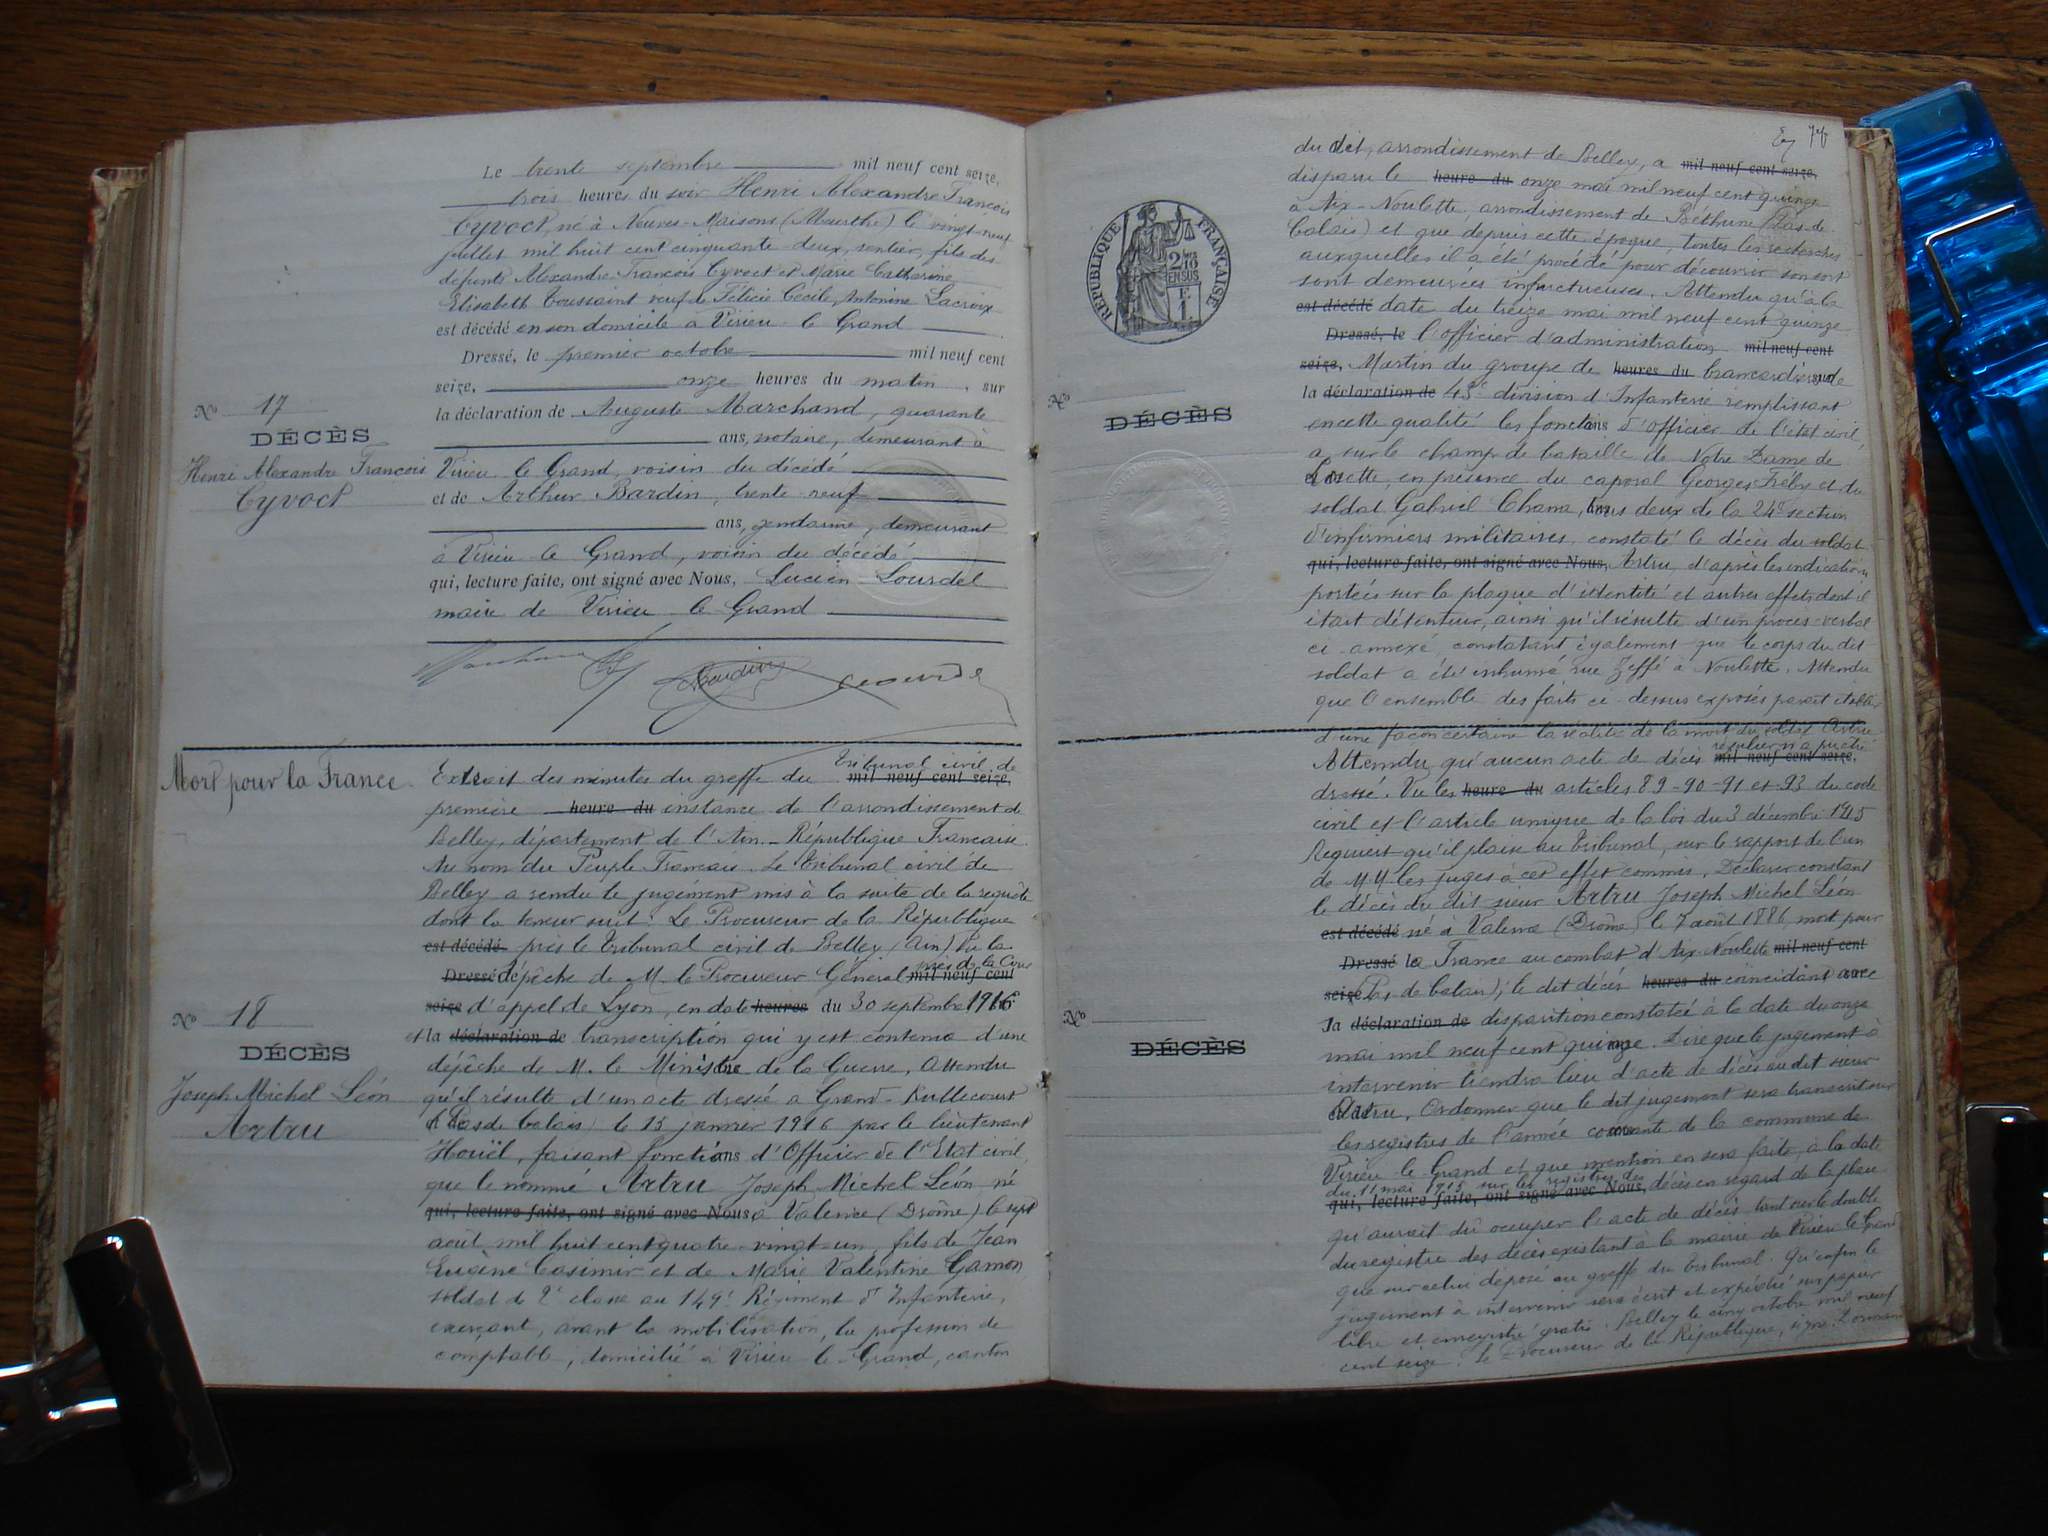 Le trente septembre mil neuf cent seize,
trois heures du soir Henri Alexandre François
Cyvoct, né à Neuves-Maisons (Meurthe) le vingt-neuf
juillet mil huit cent cinquante-deux, rentier, fils des
défunts Alexandre François Cyvoct et Marie Catherine
Elisabeth Toussaint veuf de Félicie Cécile Antonine Lacroix
est décédé en son domicile à Virieu-le-Grand
Dressé, le premier octobre mil neuf cent
seize, onze heures du matin, sur
la déclaration de Auguste Marchand, quarante
ans, notaire, demeurant à
Virieu-le-Grand, voisin du décédé
et de Arthur Bardin, trente-neuf
ans, gendarme, demeurant
à Virieu-le-Grand, voisin du décédé
qui, lecture faite, ont signé avec Nous, Lucien Lourdel
maire de Virieu-le-Grand
No 17
DÉCÈS
Henri Alexandre François
Cyvoct
Mort pour la France
No 18
DÉCÈS
Joseph Michel Léon
Artru
Extrait des minutes du greffe du Tribunal civil de mil neuf cent seize,
première heure du instance de l'arrondissement de
Belley, département de l'Ain. République Française.
Au nom du Peuple Français. Le tribunal civil de
Belley a rendu le jugement mis à la suite de la requête
dont la teneur suit: Le Procureur de la République
est décédé près le tribunal civil de Belley (Ain) Vu la
Dressé dépêche de M. le Procureur Général près de la Cour mil neuf cent
seize d'appel de Lyon, en date heures du 30 septembre 1916
et la déclaration de transcription qui y est contenue d'une
dépêche de M. le Ministre de la Guerre, Attendu
qu'il résulte d'un acte dressé à Grand-Rullecourt
(Pas de Calais) le 15 janvier 1916 par le lieutenant
Houël, faisant fonctions d'Officier de l'Etat civil,
que le nommé Artru Joseph Michel Léon né
qui, lecture faite, ont signé avec Nous à Valence (Drôme) le sept
août mil huit cent quatre-vingt-un, fils de Jean
Eugène Casimir et de Marie Valentine Gamon,
soldat de 2e classe au 149e Régiment d'Infanterie,
exerçant, avant la mobilisation, la profession de
comptable, domicilié à Virieu-le-Grand, canton
RÉPUBLIQUE FRANÇAISE
2/10 EN SUS
No
DÉCÈS
No
DÉCÈS
du dit, arrondissement de Belley, a mil neuf cent seize,
disparu le heure du onze mai mil neuf cent quinze
à Aix-Noulette, arrondissement de Béthune (Pas-de-
Calais) et que depuis cette époque, toutes les recherches
auxquelles il a été procédé pour découvrir son sort
sont demeurées infructueuses. Attendu qu'à la
est décédé date du treize mai mil neuf cent quinze
Dressé, le l'officier d'administration mil neuf cent
seize, Martin du groupe de heures du brancardiers de
la déclaration de 43e division d'Infanterie remplissant
en cette qualité les fonctions d'officier de l'état civil,
a, sur le champ de bataille de Notre Dame de
Lorette, en présence du caporal Georges et du
soldat Gabriel Chana, tous deux de la 24e section
d'infirmiers militaires constaté le décès du soldat
qui, lecture faite, ont signé avec Nous, Artru, d'après les indications
portées sur la plaque d'identité et autres effets dont il
était détenteur, ainsi qu'il résulte d'un procès-verbal
ci-annexé, constatant également que le corps du dit
soldat a été inhumé rue à Noulette. Attendu
que l'ensemble des faits ci-dessus exposés parait établir
d'une façon certaine la réalité de la mort du soldat Artru
Attendu qu'aucun acte de décès régulier n'a pu être mil neuf cent seize,
dressé. Vu les heure du articles 89-90-91 et 93 du code
civil et l'article unique de la loi du 3 décembre 1915
Requiert qu'il plaise au tribunal, sur le rapport de l'un
de M.M. les juges à cet effet commis, Déclarer constant
le décès du dit sieur Artru Joseph Michel Léon
est décédé né à Valence (Drôme) le 7 août 1886, mort pour
Dressé la France au combat d'Aix-Noulette mil neuf cent
seize (Pas de Calais), le dit décès heures du coïncidant avec
la déclaration de disparition constatée à la date du onze
mai mil neuf cent quinze. Dire que le jugement à
intervenir tiendra lieu d'acte de décès au dit sieur
Artru, Ordonner que le dit jugement sera transcrit sur
les registres de l'année courante de la commune de
Virieu-le-Grand et que mention en sera faite, à la date
du 11 mai 1915 sur les registres des
qui, lecture faite, ont signé avec Nous, décès en regard de la place
qu'aurait dû occuper l'acte de décès tant sur le double
du registre des décès existant à la mairie de Virieu-le-Grand
que sur celui déposé au greffe du tribunal. Qu'enfin le
jugement à intervenir sera écrit et expédié sur papier
libre et enregistré gratis. Belley le cinq octobre mil neuf
cent seize. Le Procureur de la République, signé: